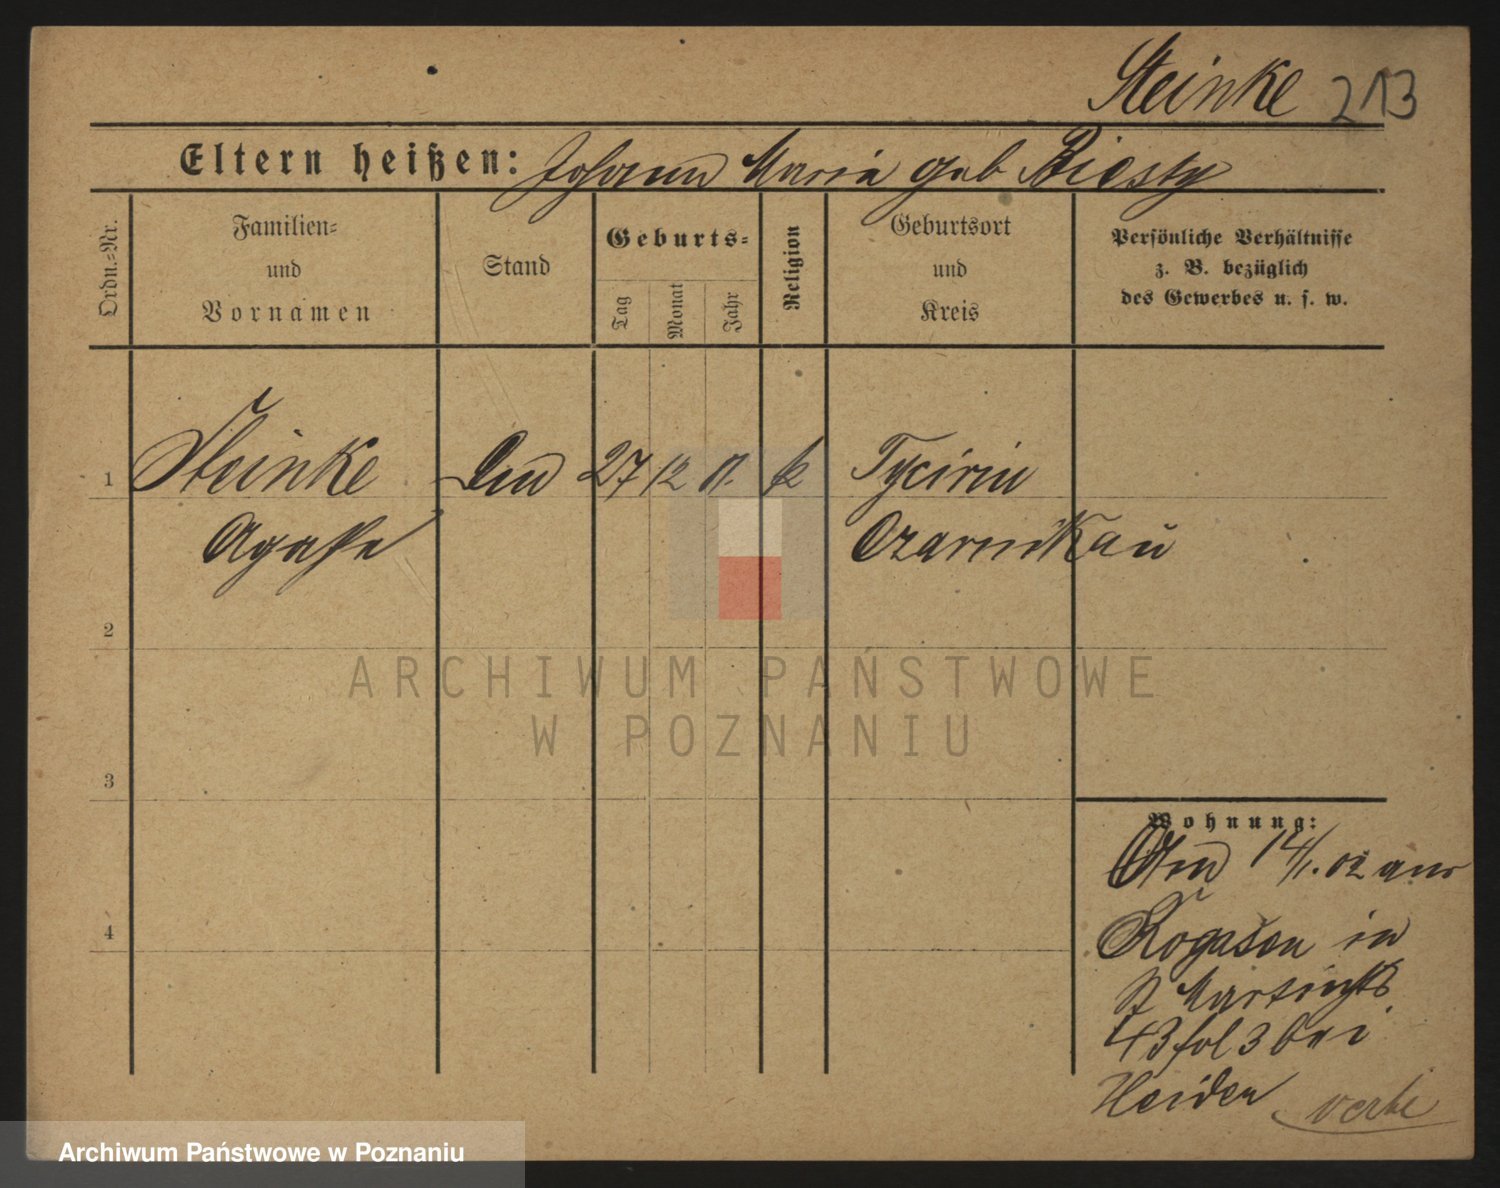 Steinke 213
Eltern heißen: Johann Maria geb Biesky
Ordn.-Nr.
Familien-
und
Vornamen
Stand
Geburts-
Tag
Monat
Jahr
Religion
Geburtsort
und
Kreis
Persönliche Verhältnisse
z. B. bezüglich
des Gewerbes u. s. w.
1 Steinke 27 12 k
Agathe Czarnikau
2
3
4
ARCHIWUM PAŃSTWOWE
W POZNANIU
Wohnung:
14/1.02 aus
Rogasen in
St Martinstr
43 bei
Heiden
Archiwum Państwowe w Poznaniu